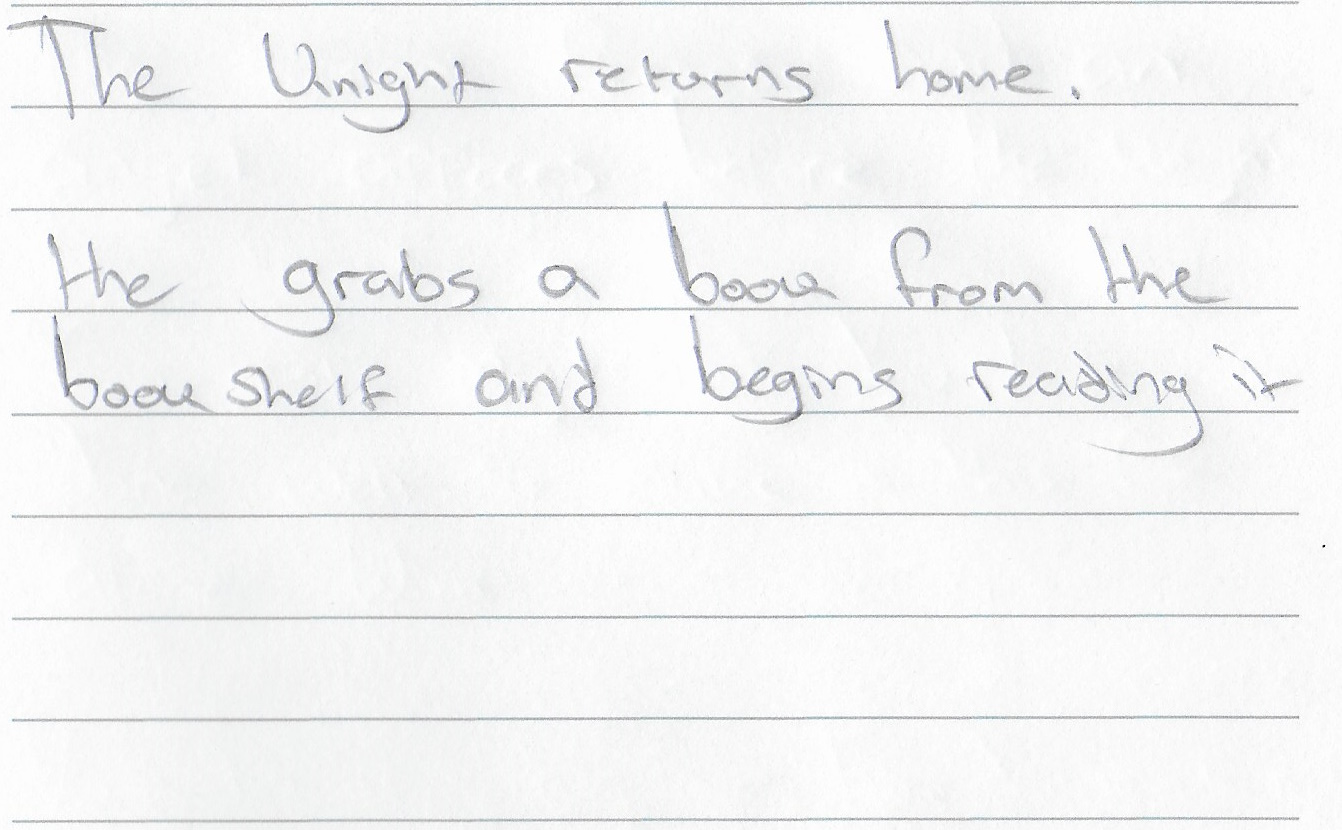 The Knight returns home.
the grabs a book from the
book shelf and begins reading it